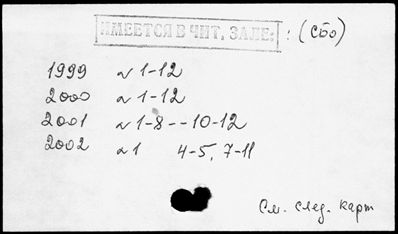 ИМЕЕТСЯ В ЧИТ. ЗАЛЕ: : (СБО)
1999 N 1-12
2000 N 1-12
2001 N 1-8--10-12
2002 N 1 4-5, 7-11
См. след. карт